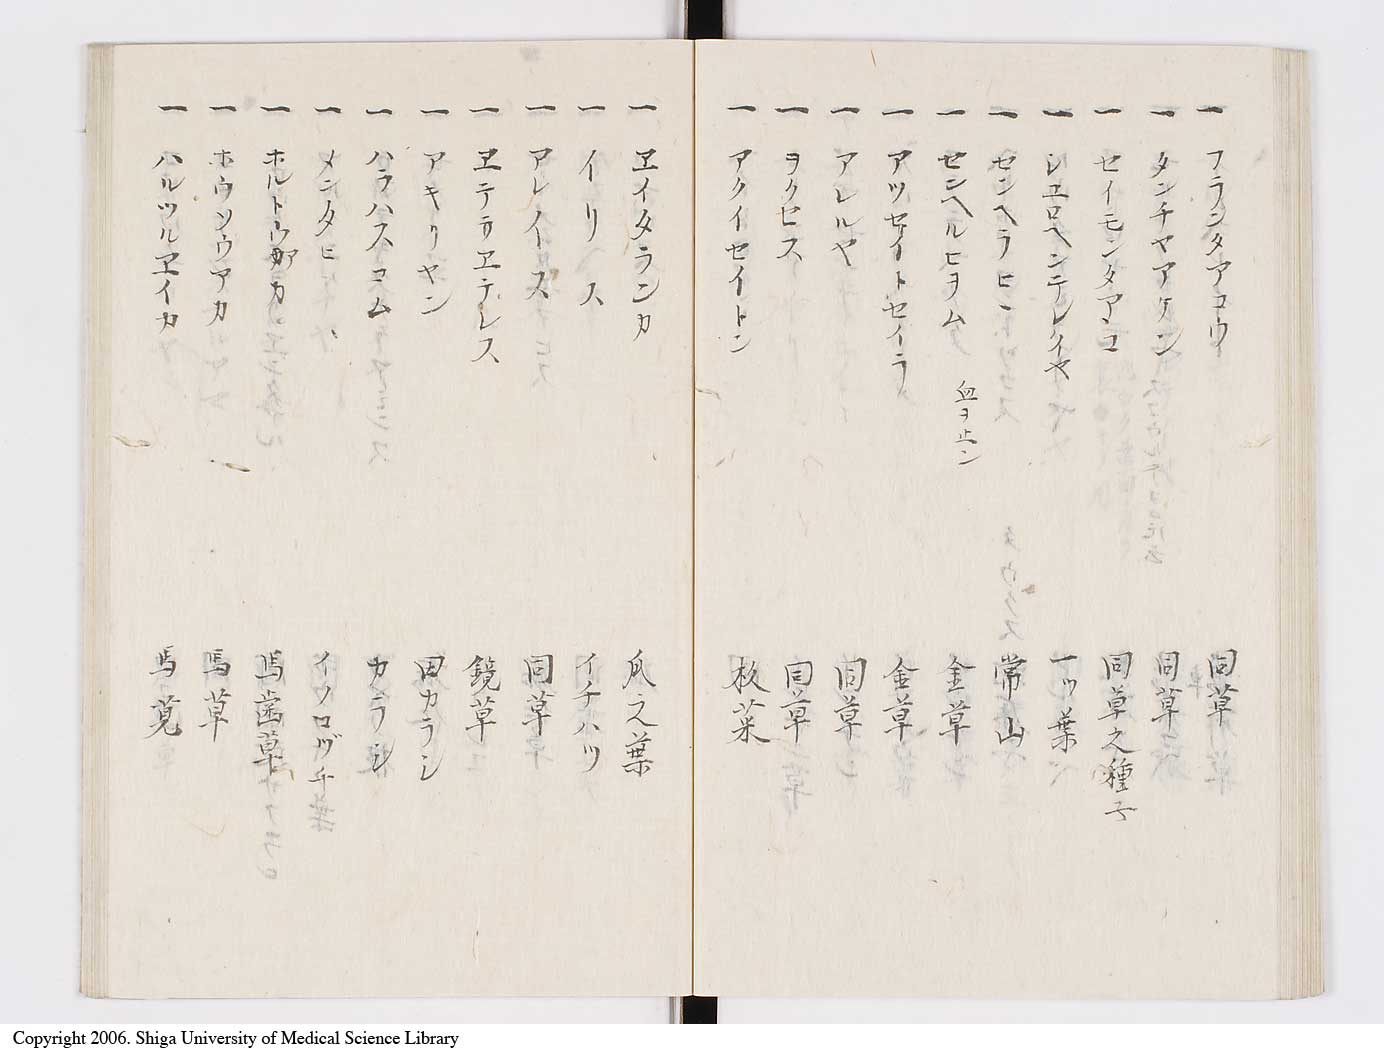 一 フランタアコウ 同草
一 タンチヤアケン 同草
一 セイモンタアンコ 同草之種子
一 シエロヘンテレケイヤ 一ツ葉
一 センヘラヒン 常山
一 センヘルヒヨム 血ヲ止ン 金草
一 アツセイトセイラ 金草
一 アレルヤ 同草
一 ヲクセス 同草
一 アクイセイトン 板菜
一 ヱイタランカ 爪之葉
一 イリス イチハツ
一 アレイース 同草
一 ヱテラヱテレス 鏡草
一 アキリヤン 田カラシ
一 ハラハスコム カラシ
一 メンタヒ イノコヅチ葉
一 ホルトウカアカ 馬歯草
一 ホウソウアカ 馬草
一 ハルツルヱイカ 馬莧
Copyright 2006. Shiga University of Medical Science Library